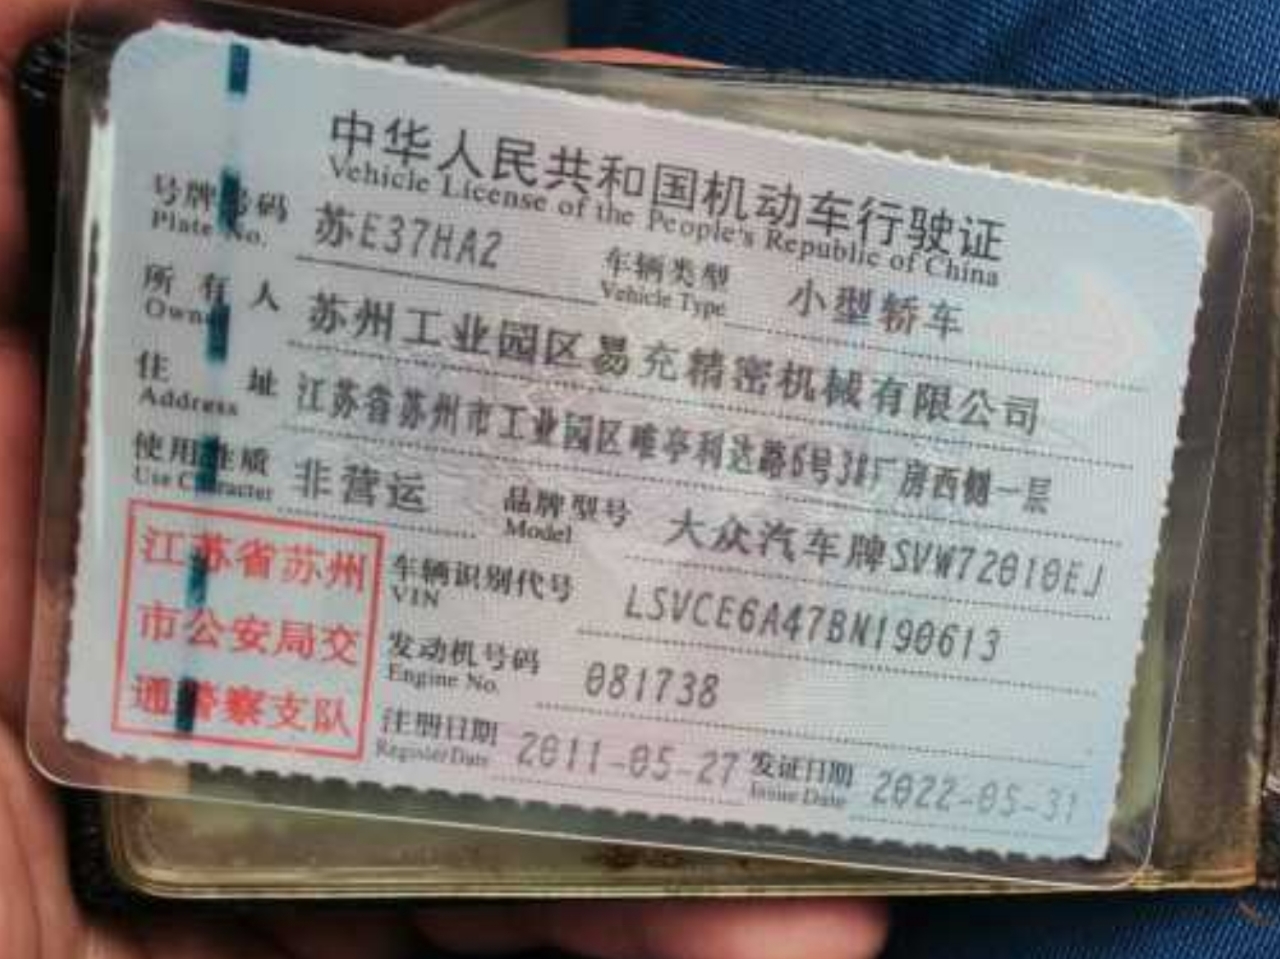 中华人民共和国机动车行驶证
Vehicle License of the People's Republic of China
号牌号码 苏E37HA2 车辆类型 小型轿车
Plate No. Vehicle Type
所有人 苏州工业园区易充精密机械有限公司
Owner
住址 江苏省苏州市工业园区唯亭利达路6号38厂房西侧一层
Address
使用性质 非营运 品牌型号 大众汽车牌SVW72010EJ
Use Character Model
江苏省苏州
市公安局交
通警察支队
车辆识别代号 LSVCE6A47BN190613
VIN
发动机号码 081738
Engine No.
注册日期 2011-05-27 发证日期 2022-05-31
Register Date Issue Date